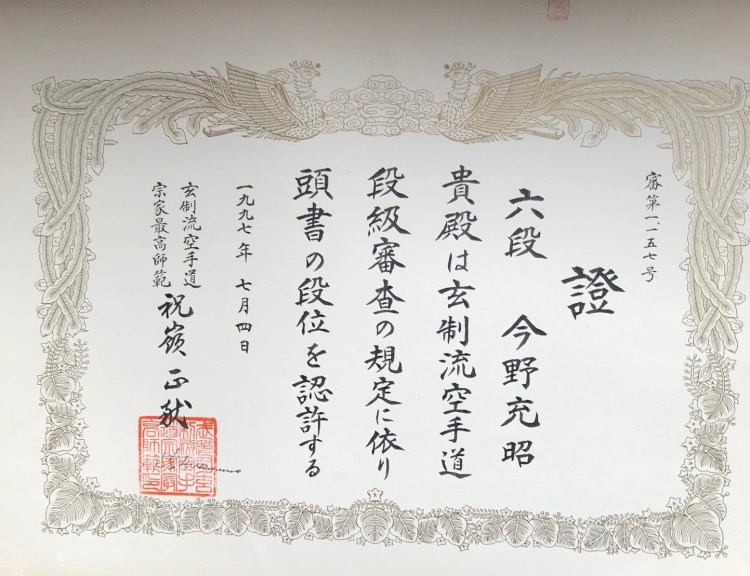 審第一、一五七号
證
六段 今野充昭
貴殿は玄制流空手道
段級審査の規定に依り
頭書の段位を認許する
一九九七年 七月四日
玄制流空手道
宗家最高師範
祝嶺正献